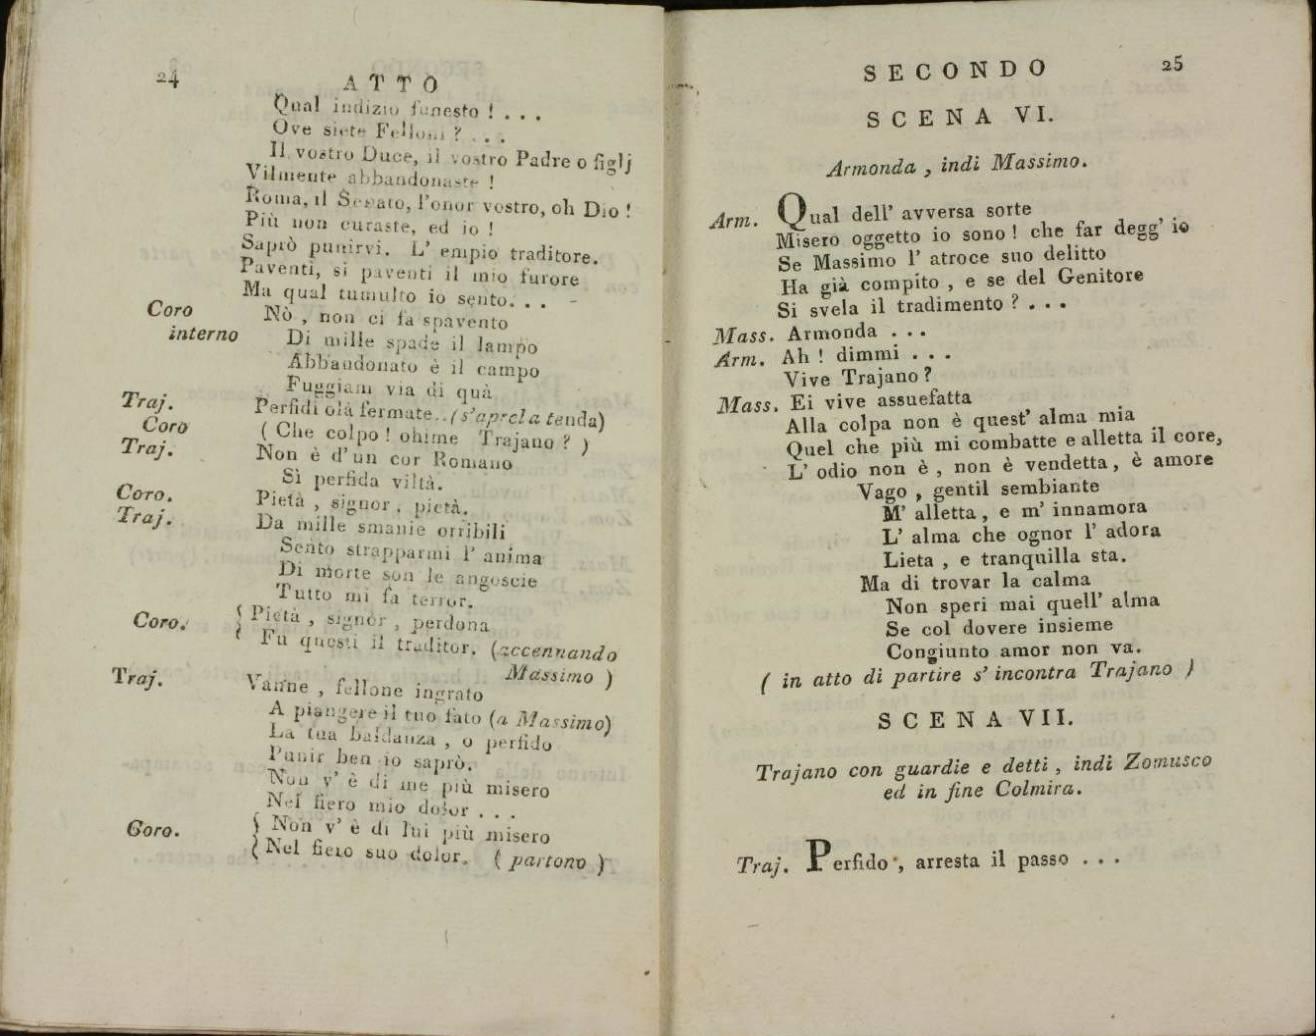 24
ATTO
Qual indizio funesto ! . . .
Ove siete Felloni ? . . .
Il vostro Duce, il vostro Padre o figlj
Vilmente abbandonaste !
Roma, il Senato, l'onor vostro, oh Dio !
Più non curaste, ed io !
Saprò punirvi. L' empio traditore.
Paventi, si paventi il mio furore
Ma qual tumulto io sento. . .
Coro interno Nò , non ci fa spavento
Di mille spade il lampo
Abbandonato è il campo
Fuggiam via di quà
Traj. Perfidi olà fermate. . (s'apre la tenda)
Coro ( Che colpo ! ohime Trajano ? )
Traj. Non è d'un cor Romano
Sì perfida viltà.
Coro. Pietà , signor , pietà.
Traj. Da mille smanie orribili
Sento strapparmi l' anima
Di morte son le angoscie
Tutto mi fa terror.
Coro. { Pietà , signor , perdona
{ Fu questi il traditor. (accennando
Massimo )
Traj. Vanne , fellone ingrato
A piangere il tuo fato (a Massimo)
La tua baldanza , o perfido
Punir ben io saprò.
Non v' è di me più misero
Nel fiero mio dolor . . .
Goro. { Non v' è di lui più misero
{ Nel fiero suo dolor. ( partono )
SECONDO
25
SCENA VI.
Armonda , indi Massimo.
Arm. Qual dell' avversa sorte
Misero oggetto io sono ! che far degg' io
Se Massimo l' atroce suo delitto
Ha già compito , e se del Genitore
Si svela il tradimento ? . . .
Mass. Armonda . . .
Arm. Ah ! dimmi . . .
Vive Trajano ?
Mass. Ei vive assuefatta
Alla colpa non è quest' alma mia
Quel che più mi combatte e alletta il core,
L' odio non è , non è vendetta, è amore
Vago , gentil sembiante
M' alletta , e m' innamora
L' alma che ognor l' adora
Lieta , e tranquilla sta.
Ma di trovar la calma
Non speri mai quell' alma
Se col dovere insieme
Congiunto amor non va.
( in atto di partire s' incontra Trajano )
SCENA VII.
Trajano con guardie e detti , indi Zomusco
ed in fine Colmira.
Traj. Perfido , arresta il passo . . .